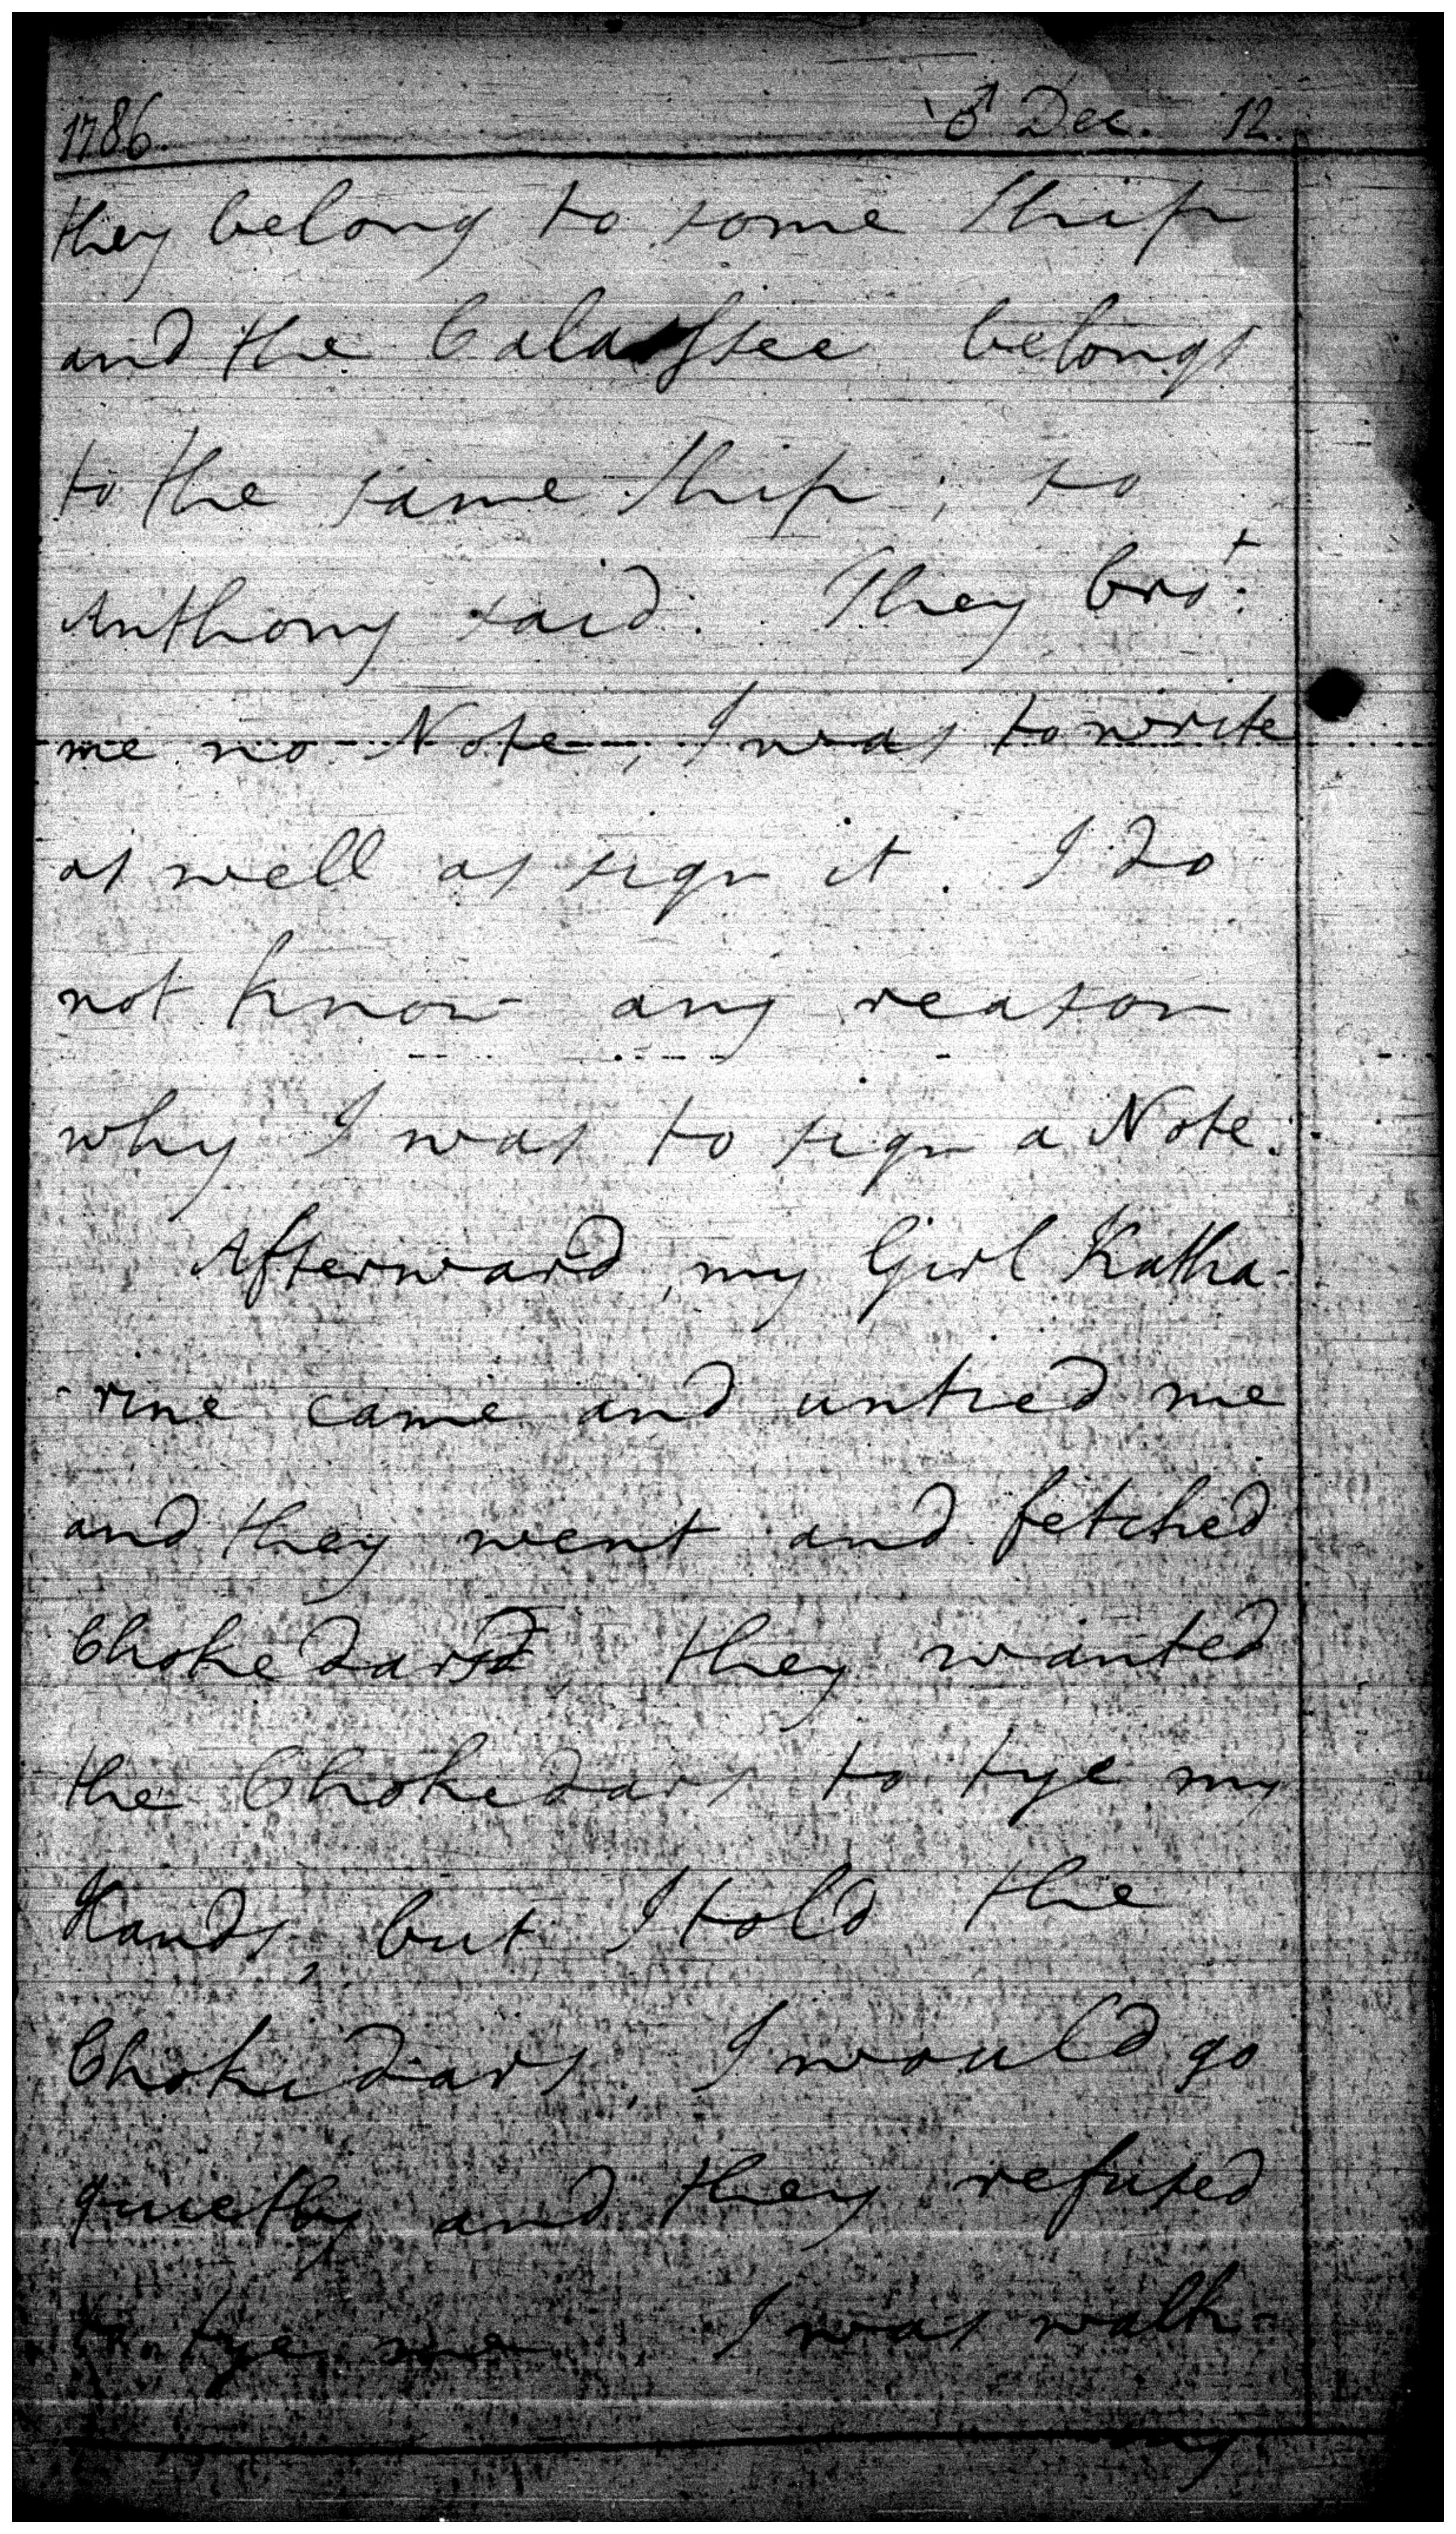 1786. ♂ Dec. 12.
they belong to some Ship
and the Calassee belongs
to the same Ship; so
Anthony said. They bro.t
me no Note, I was to write
as well as sign it. I do
not know any reason
why I was to sign a Note.
Afterward, my Girl Katha-
-rine came and untied me
and they went and fetched
Chokedars, they wanted
the Chokedars to tye my
Hands, but I told the
Chokedars, I would go
quietly and they refused
to tye me. I was walk-
ing